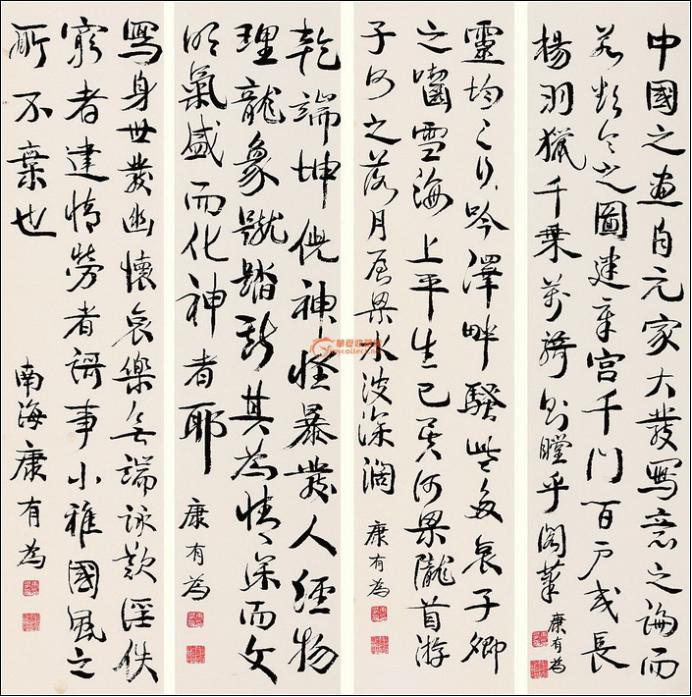 中國之畫自元家大發寫意之論而
若欲令之圖建章宮千門百戶或長
楊羽獵千乘萬騎則瞠乎閣筆
康有為
靈均之行吟澤畔騷些多哀子卿
之齧雪海上平生已矣河梁隴首游
子何之落月屋梁水波深闊
康有為
乾端坤倪神怪暴發人經物
理龍象蹴踏斯其為情深而文
明氣盛而化神者耶
康有為
寫身世發幽懷哀樂無端詠歎淫佚
窮者達情勞者謌事小雅國風之
所不棄也
南海康有為